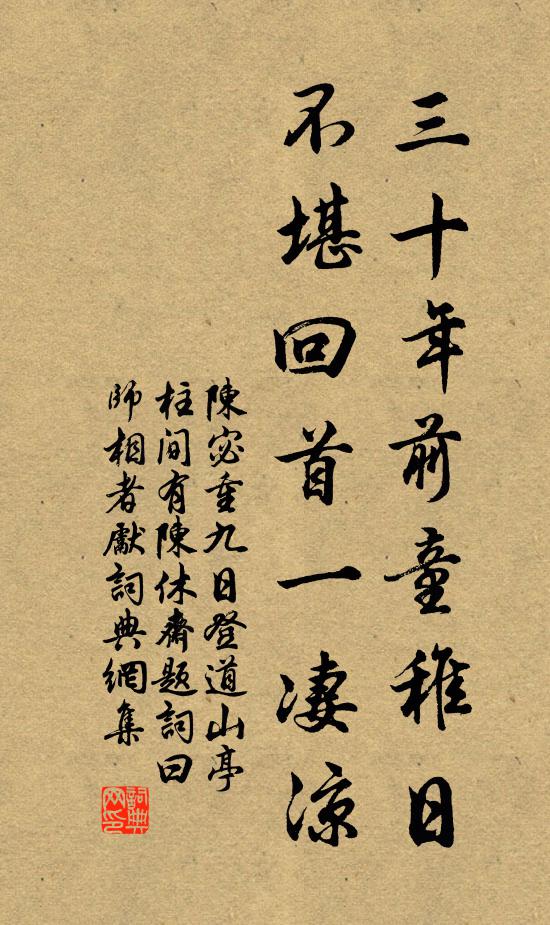 三十年前童稚日
不堪回首一凄涼
陳宓重九日登道山亭
柱間有陳休齋題詞曰
師相者獻詞典網集
詞典网印